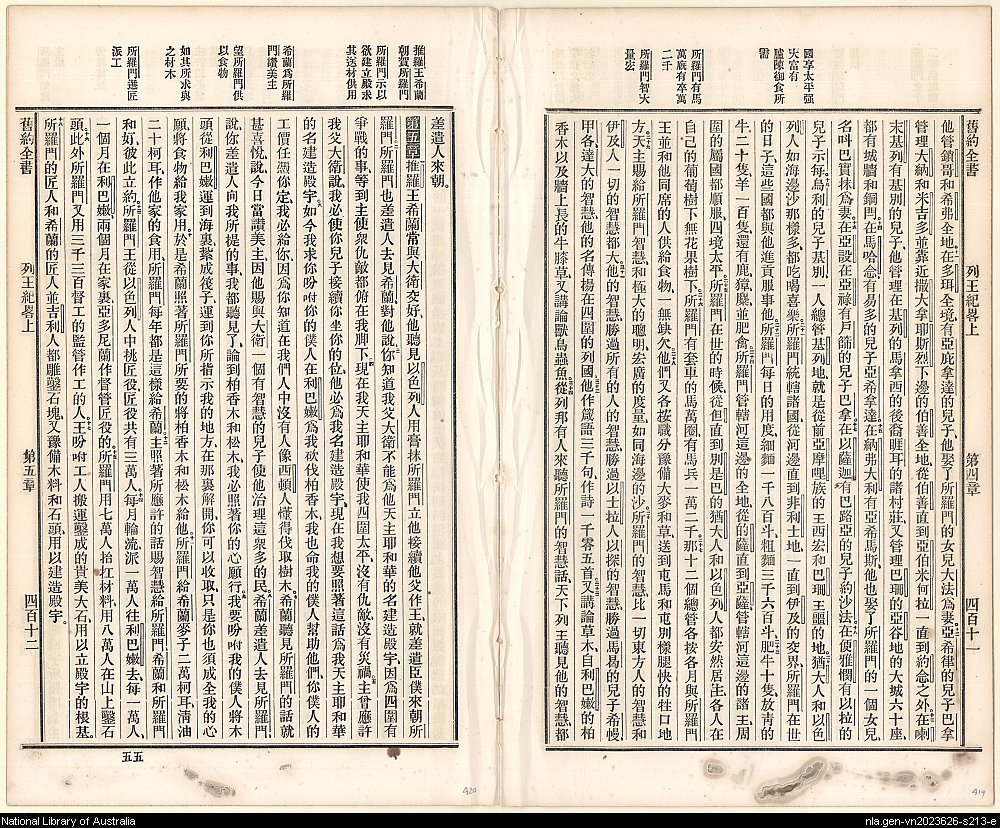 國享太平强
大富有
臚陳御食所
需
所羅門有馬
萬底有卒萬
二千
所羅門智大
量宏
舊約全書 列王紀畧上 第四章 四百十一
他管鎖哥和希弗全地、在多珥全境有亞庇拿達的兒子、他娶了所羅門的女兒大法為妻、亞希律的兒子巴拿
管理大納和米吉多並靠近撒大拿耶斯烈下邊的伯善全地、從伯善直到亞伯米何拉、一直到約念之外、在喇
末基列有基別的兒子、他管理在基列的馬拿西的後裔睚耳的諸村莊、又管理巴珊的亞谷地的大城六十座、
都有城牆和銅閂、在馬哈念有易多的兒子亞希拿達、在納弗大利有亞希馬斯、他也娶了所羅門的一個女兒、
名叫巴實抹為妻、在亞設在亞祿有戶篩的兒子巴拿、在以薩迦有巴路亞的兒子約沙法、在便雅憫有以拉的
兒子示每、烏利的兒子基別一人總管基列地、就是從前亞摩哩族的王西宏和巴珊王噩的地、猶大人和以色
列人如海邊沙那樣多、都吃喝喜樂、所羅門統轄諸國、從河邊直到非利士地、一直到伊及的交界、所羅門在世
的日子、這些國都與他進貢服事他、所羅門每日的用度、細麵一千八百斗、粗麵三千六百斗、肥牛十隻、放青的
牛二十隻、羊一百隻、還有鹿獐麞並肥禽、所羅門管轄河這邊的全地、從的薩直到亞薩、管轄河這邊的諸王、周
圍的屬國都順服、四境太平、所羅門在世的時候、從但直到別是巴的猶大人和以色列人、都安然居住、各人在
自己的葡萄樹下無花果樹下、所羅門有套車的馬萬圈、有馬兵一萬二千、那十二個總管各按各月與所羅門
王並和他同席的人供給食物、一無缺欠、他們又各按職分豫備大麥和草、送到屯馬和屯別樣腿快的牲口地
方、天主賜給所羅門智慧和極大的聰明、宏廣的度量、如同海邊的沙、所羅門的智慧、比一切東方人的智慧和
伊及人一切的智慧都大、他的智慧勝過所有的人的智慧、勝過以士拉人以探的智慧、勝過馬曷的兒子希幔
甲各達大的智慧、他的名傳揚在四圍的列國、他作箴語三千句、作詩一千零五首、又講論草木、自利巴嫩的柏
香木以及牆上長的牛膝草、又講論獸鳥蟲魚、從列邦有人來聽所羅門的智慧話、天下列王聽見他的智慧、都
419
推羅王希蘭
朝賀所羅門
所羅門示以
欲建立殿求
其送材供用
希蘭為所羅
門讚美主
望所羅門供
以食物
如其所求與
之材木
所羅門選匠
派工
差遣人來朝。
第五章 推羅王希蘭當與大衛交好、他聽見以色列人用膏抹所羅門立他接續他父作王、就差遣臣僕來朝所
羅門、所羅門也差遣人去見希蘭對他說、你知道我父大衛不能為他天主耶和華的名建造殿宇、因為四圍有
爭戰的事、等到主使眾仇敵都俯在我脚下、現在我天主耶和華使我四圍太平、沒有仇敵、沒有災禍、主曾應許
我父大衛說、我必使你兒子接續你坐你的位、他必為我名建造殿宇、現在我想要照著這話為我天主耶和華
的名建造殿宇、如今我求你吩咐你的僕人在利巴嫩為我砍伐柏香木、我也命我的僕人幫助他們、你僕人的
工價任憑你定、我必給你、因為你知道在我們人中沒有人像西頓人懂得伐取樹木、希蘭聽見所羅門的話就
甚喜悅、說今日當讚美主、因他賜與大衛一個有智慧的兒子、使他治理這眾多的民、希蘭差遣人去見所羅門
說、你差遣人向我所提的事、我都聽見了、論到柏香木和松木、我必照著你的心願行、我要吩咐我的僕人將木
頭從利巴嫩運到海裏、紮成筏子、運到你所指示我的地方、在那裏解開、你可以收取、只是你也須成全我的心
願、將食物給我家用、於是希蘭照著所羅門所要的、將柏香木和松木給他、所羅門給希蘭麥子二萬柯耳、清油
二十柯耳、作他家的食用、所羅門每年都是這樣給希蘭、主照著所應許的話賜智慧給所羅門、希蘭和所羅門
和好、彼此立約、所羅門王從以色列人中挑匠役、匠役共有三萬人、每月輪流派一萬人往利巴嫩去、每一萬人、
一個月在利巴嫩、兩個月在家裏、亞多尼蘭作督管匠役的、所羅門用七萬人抬扛材料、用八萬人在山上鑿石
頭、此外所羅門又用三千三百督工的監管作工的人、王吩咐工人搬運鑿成的貴美大石、用以立殿宇的根基、
所羅門的匠人和希蘭的匠人並吉利人都雕鑿石塊、又豫備木料和石頭、用以建造殿宇。
舊約全書 列王紀畧上 第五章 四百十二
五五
420
National Library of Australia
nla.gen-vn2023626-s213-e